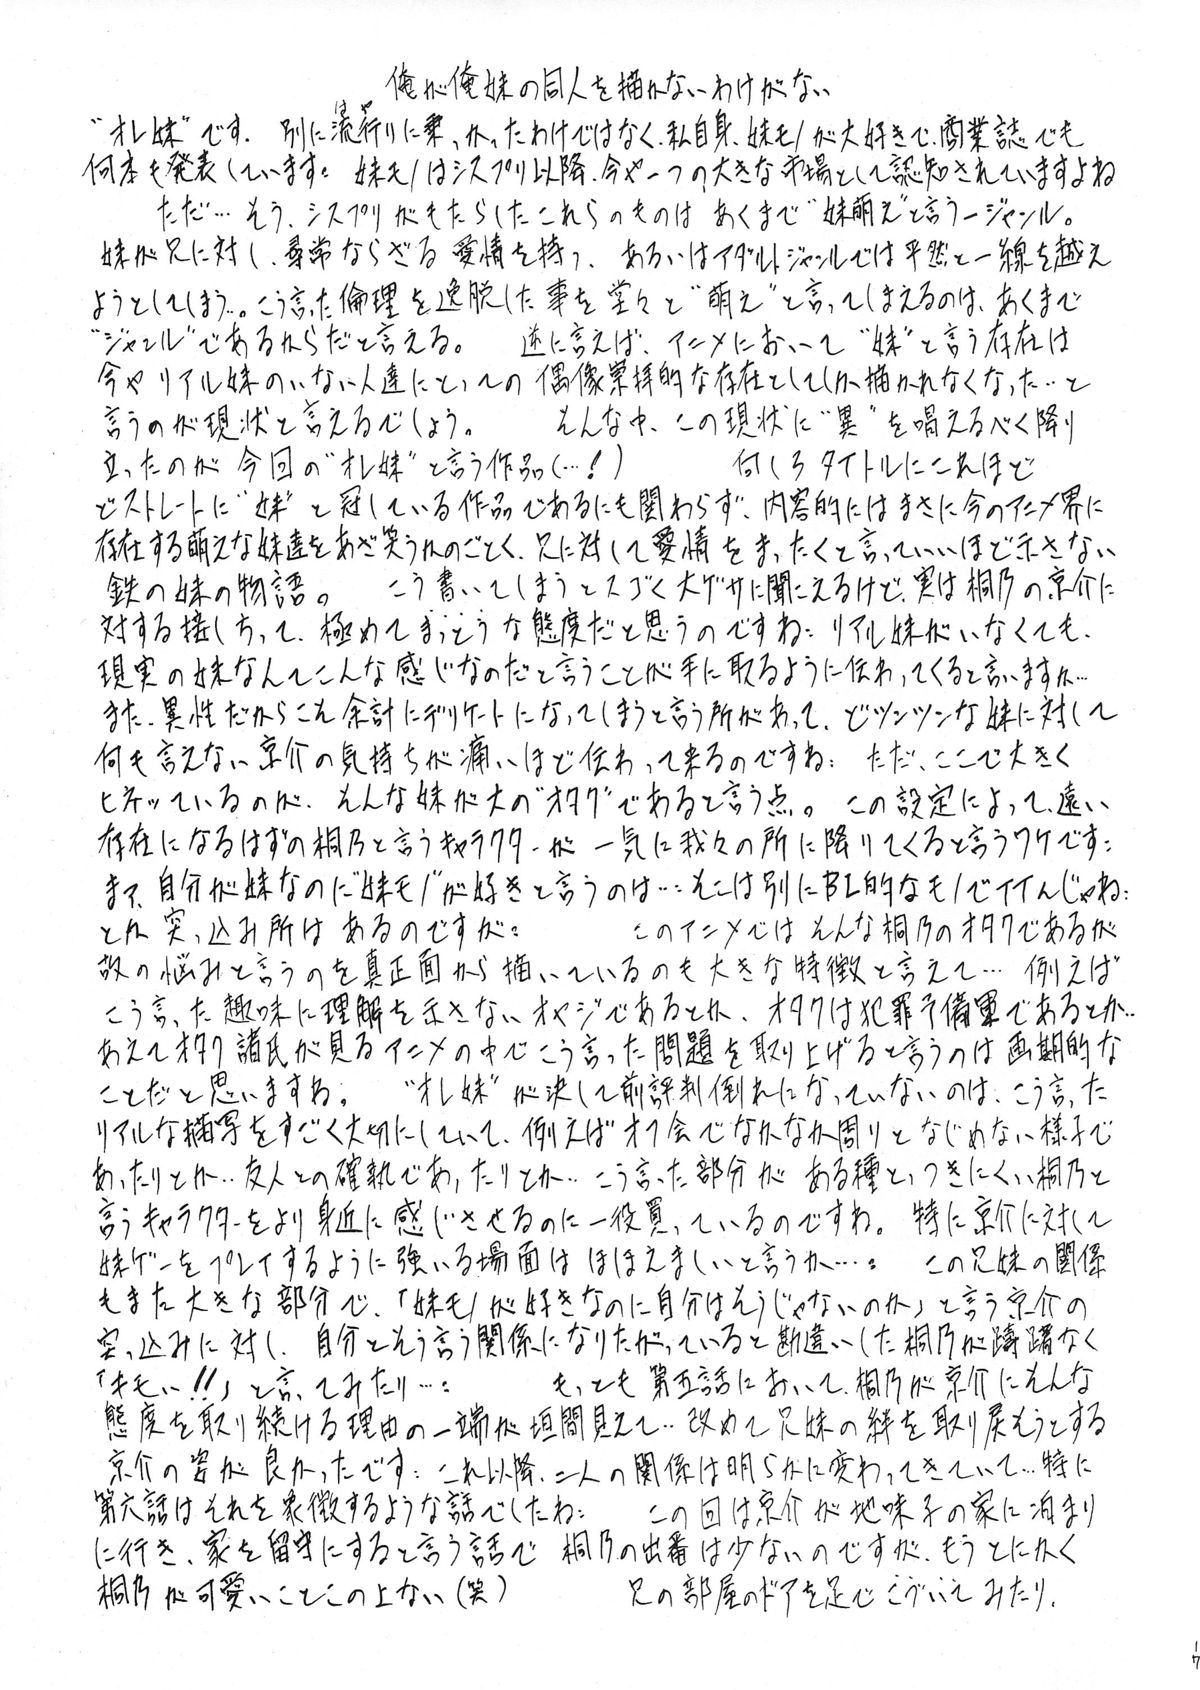 俺が俺妹の同人を描かないわけがない
“オレ妹”です. 別に流行りに乗っかったわけではなく、私自身、妹モノが大好きで、商業誌でも
はや
何本も発表しています: 妹モノはシスプリ以降、今や一つの大きな市場として認知されていますよね
ただ… そう、シスプリがもたらしたこれらのものは あくまで“妹萌え”と言う一ジャンル。
妹が兄に対し、尋常ならざる愛情を持つ、 あるいはアダルトジャンルでは平然と一線を越え
ようとしてしまう…。こう言った倫理を逸脱した事を堂々と“萌え”と言ってしまえるのは、あくまで
“ジャンル”であるからだと言える。 逆に言えば、アニメにおいて“妹”と言う存在は
今やリアル妹のいない人達にとっての 偶像崇拝的な存在としてしか描かれなくなった…と
言うのが現状と言えるでしょう。 そんな中、この現状に“異”を唱えるべく降り
立ったのが 今回の“オレ妹”と言う作品(…!) 何しろタイトルにこれほど
どストレートに“妹”と冠している作品であるにも関わらず、内容的にはまさに今のアニメ界に
存在する萌えな妹達をあざ笑うかのごとく、兄に対して愛情をまったくと言っていいほど示さない
鉄の妹の物語。 こう書いてしまうとスゴく大ゲサに聞こえるけど、実は桐乃の京介に
対する接し方って、極めてまっとうな態度だと思うのですね: リアル妹がいなくても、
現実の妹なんてこんな感じなのだと言うことが手に取るように伝わってくると言いますか…
また、異性だからこそ余計にデリケートになってしまうと言う所があって、どツンツンな妹に対して
何も言えない京介の気持ちが痛いほど伝わって来るのですね: ただ、ここで大きく
ヒネッているのが、そんな妹が大の“オタク”であると言う点。 この設定によって、遠い
存在になるはずの桐乃と言うキャラクターが 一気に我々の所に降りてくると言うワケです:
まァ、自分が妹なのに“妹モノ”が好きと言うのは…: そこは別にBL的なモノでイイんじゃね:
とか 突っ込み所は あるのですが: このアニメでは そんな桐乃のオタクであるが
故の悩みと言うのを真正面から描いているのも大きな特徴と言えて… 例えば
こう言った趣味に理解を示さないオヤジであるとか、オタクは犯罪予備軍であるとか…
あえてオタク諸氏が見るアニメの中でこう言った問題を取り上げると言うのは画期的な
ことだと思いますね。 “オレ妹”が決して前評判倒れになっていないのは、こう言った
リアルな描写をすごく大切にしていて、例えばオフ会でなかなか周りとなじめない様子で
あったりとか… 友人との確執であったりとか… こう言った部分が ある種とっつきにくい桐乃と
言うキャラクターをより身近に感じさせるのに一役買っているのですね。 特に京介に対して
妹ゲーをプレイするように強いる場面は ほほえましいと言うか…: この兄妹の関係
もまた大きな部分で、「妹モノが好きなのに自分はそうじゃないのか」と言う京介の
突っ込みに対し、自分とそう言う関係になりたがっていると勘違いした桐乃が躊躇なく
「キモい!!」と言ってみたり…: もっとも第五話において、桐乃が京介にそんな
態度を取り続ける理由の一端が垣間見えて… 改めて兄妹の絆を取り戻そうとする
京介の姿が良かったです: これ以降、二人の関係は明らかに変わってきていて…特に
第六話はそれを象徴するような話でしたね: この回は京介が地味子の家に泊まり
に行き、家を留守にすると言う話で 桐乃の出番は少ないのですが、もうとにかく
桐乃が可愛いことこの上ない(笑) 兄の部屋のドアを足でこづいてみたり、
17